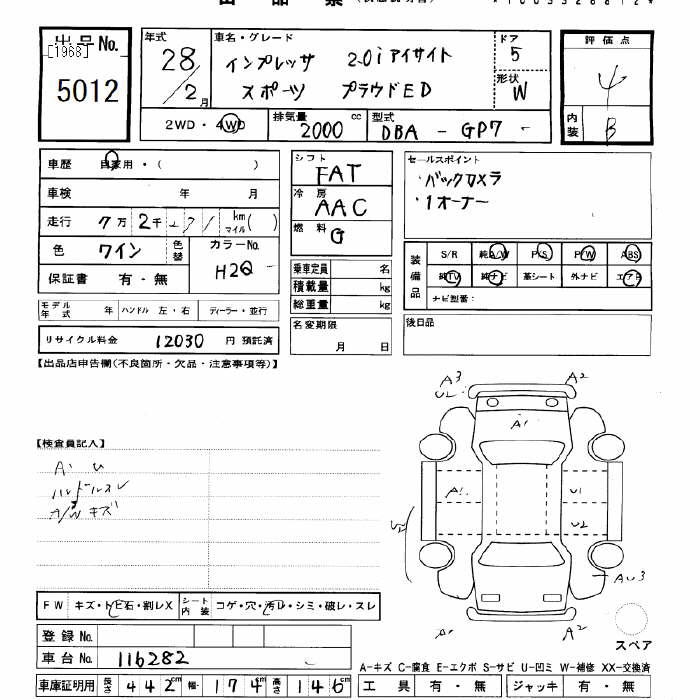 出品No.
[1968]
5012
年式
28
/2月
車名・グレード
インプレッサ 2.0i アイサイト
スポーツ プラウドED
ドア
5
形状
W
2WD・4WD
排気量 2000 cc
型式 DBA - GP7 -
評価点
4
内装 B
車歴 自家用・( )
車検 年 月
走行 7万 2千 271 km マイル( )
色 ワイン 色替
カラーNo.
H2Q
保証書 有・無
モデル年式 年 ハンドル 左・右 ディーラー・並行
リサイクル料金 12030 円 預託済
シフト
FAT
冷房
AAC
燃料
G
乗車定員 名
積載量 kg
総重量 kg
名変期限
月 日
セールスポイント
・バックカメラ
・1オーナー
装備品
S/R 純A/W P/S P/W ABS
純TV 純ナビ 革シート 外ナビ エアB
ナビ型番:
後日品
【出品店申告欄(不良箇所・欠品・注意事項等)】
【検査員記入】
A・U
ハンドルスレ
A/W キズ
A3
U2
A2
A1
A1
U1
U2
U2
AU3
A1
A2
スペア
FW キズ・トビ石・割レX
シート内装 コゲ・穴・汚レ・シミ・破レ・スレ
登録No.
車台No. 116282
車庫証明用 長さ 442cm 幅 174cm 高さ 146cm
A-キズ C-腐食 E-エクボ S-サビ U-凹ミ W-補修 XX-交換済
工具 有・無 ジャッキ 有・無